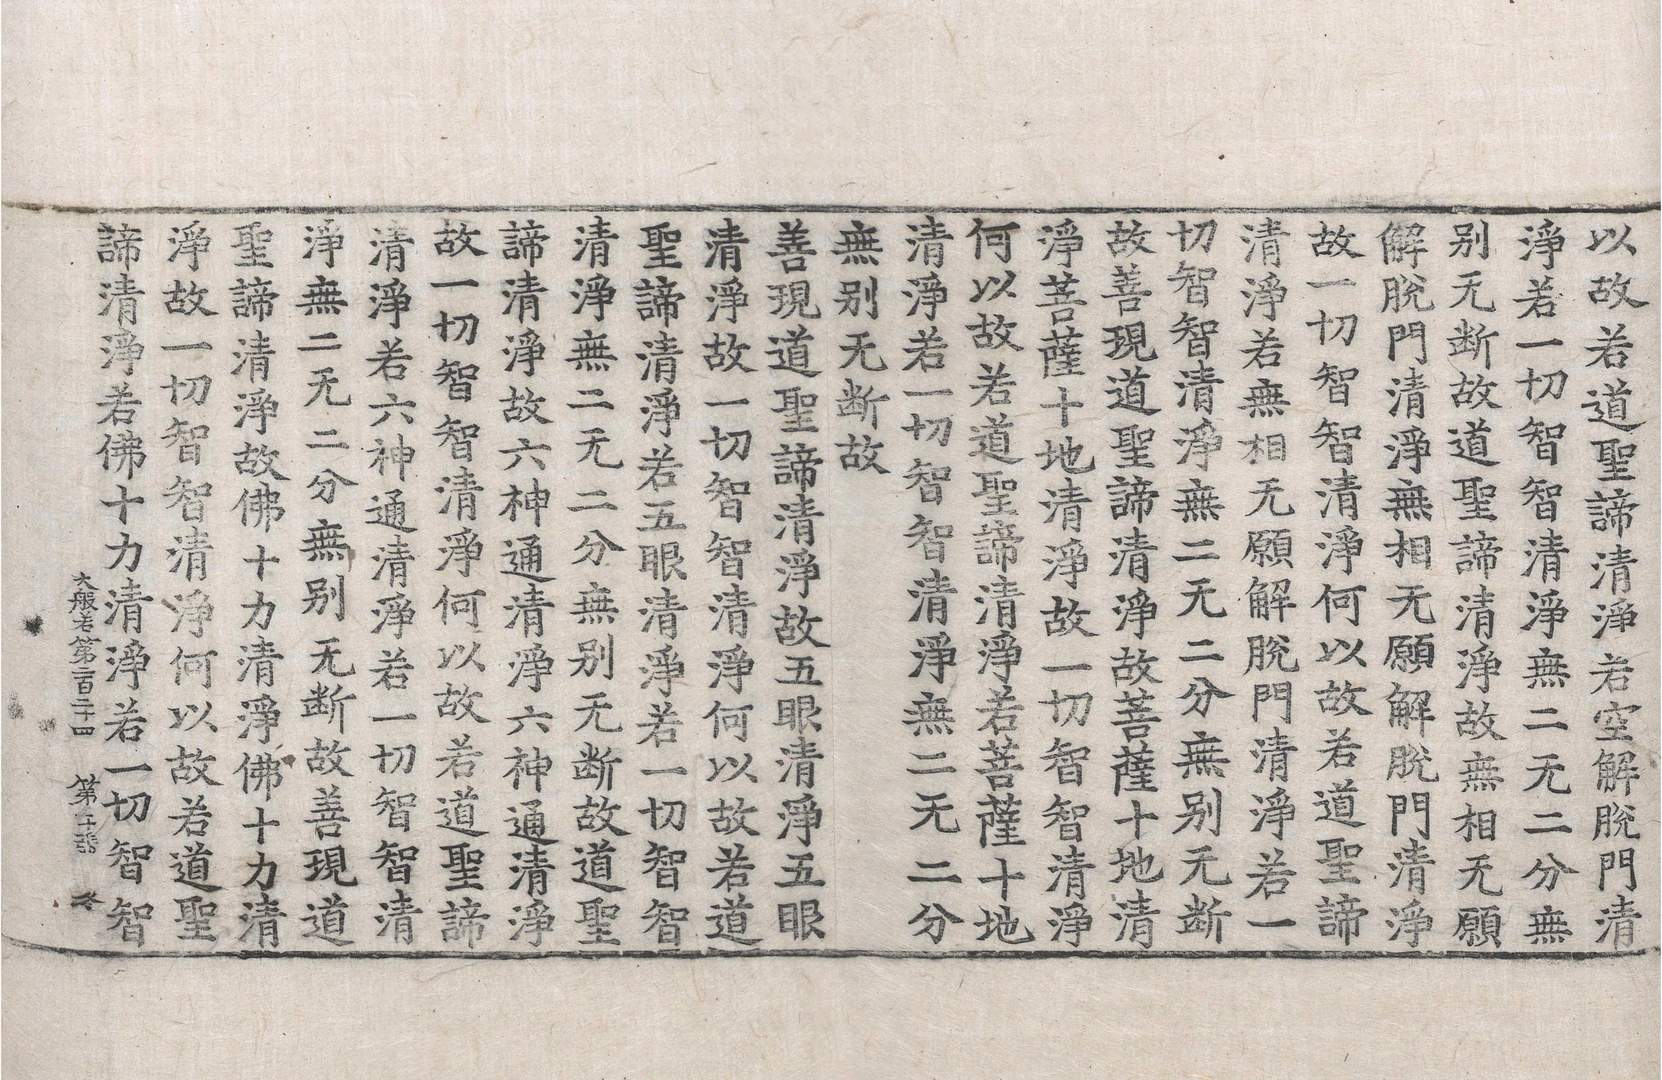 以故若道聖諦清淨若空解脫門清
淨若一切智智清淨無二无二分無
别无断故道聖諦清淨故無相无願
解脫門清淨無相无願解脫門清淨
故一切智智清淨何以故若道聖諦
清淨若無相无願解脫門清淨若一
切智智清淨無二无二分無别无断
故善現道聖諦清淨故菩薩十地清
淨菩薩十地清淨故一切智智清淨
何以故若道聖諦清淨若菩薩十地
清淨若一切智智清淨無二无二分
無别无断故
善現道聖諦清淨故五眼清淨五眼
清淨故一切智智清淨何以故若道
聖諦清淨若五眼清淨若一切智智
清淨無二无二分無别无断故道聖
諦清淨故六神通清淨六神通清淨
故一切智智清淨何以故若道聖諦
清淨若六神通清淨若一切智智清
淨無二无二分無别无断故善現道
聖諦清淨故佛十力清淨佛十力清
淨故一切智智清淨何以故若道聖
諦清淨若佛十力清淨若一切智智
大般若第二百二十四 第 冬